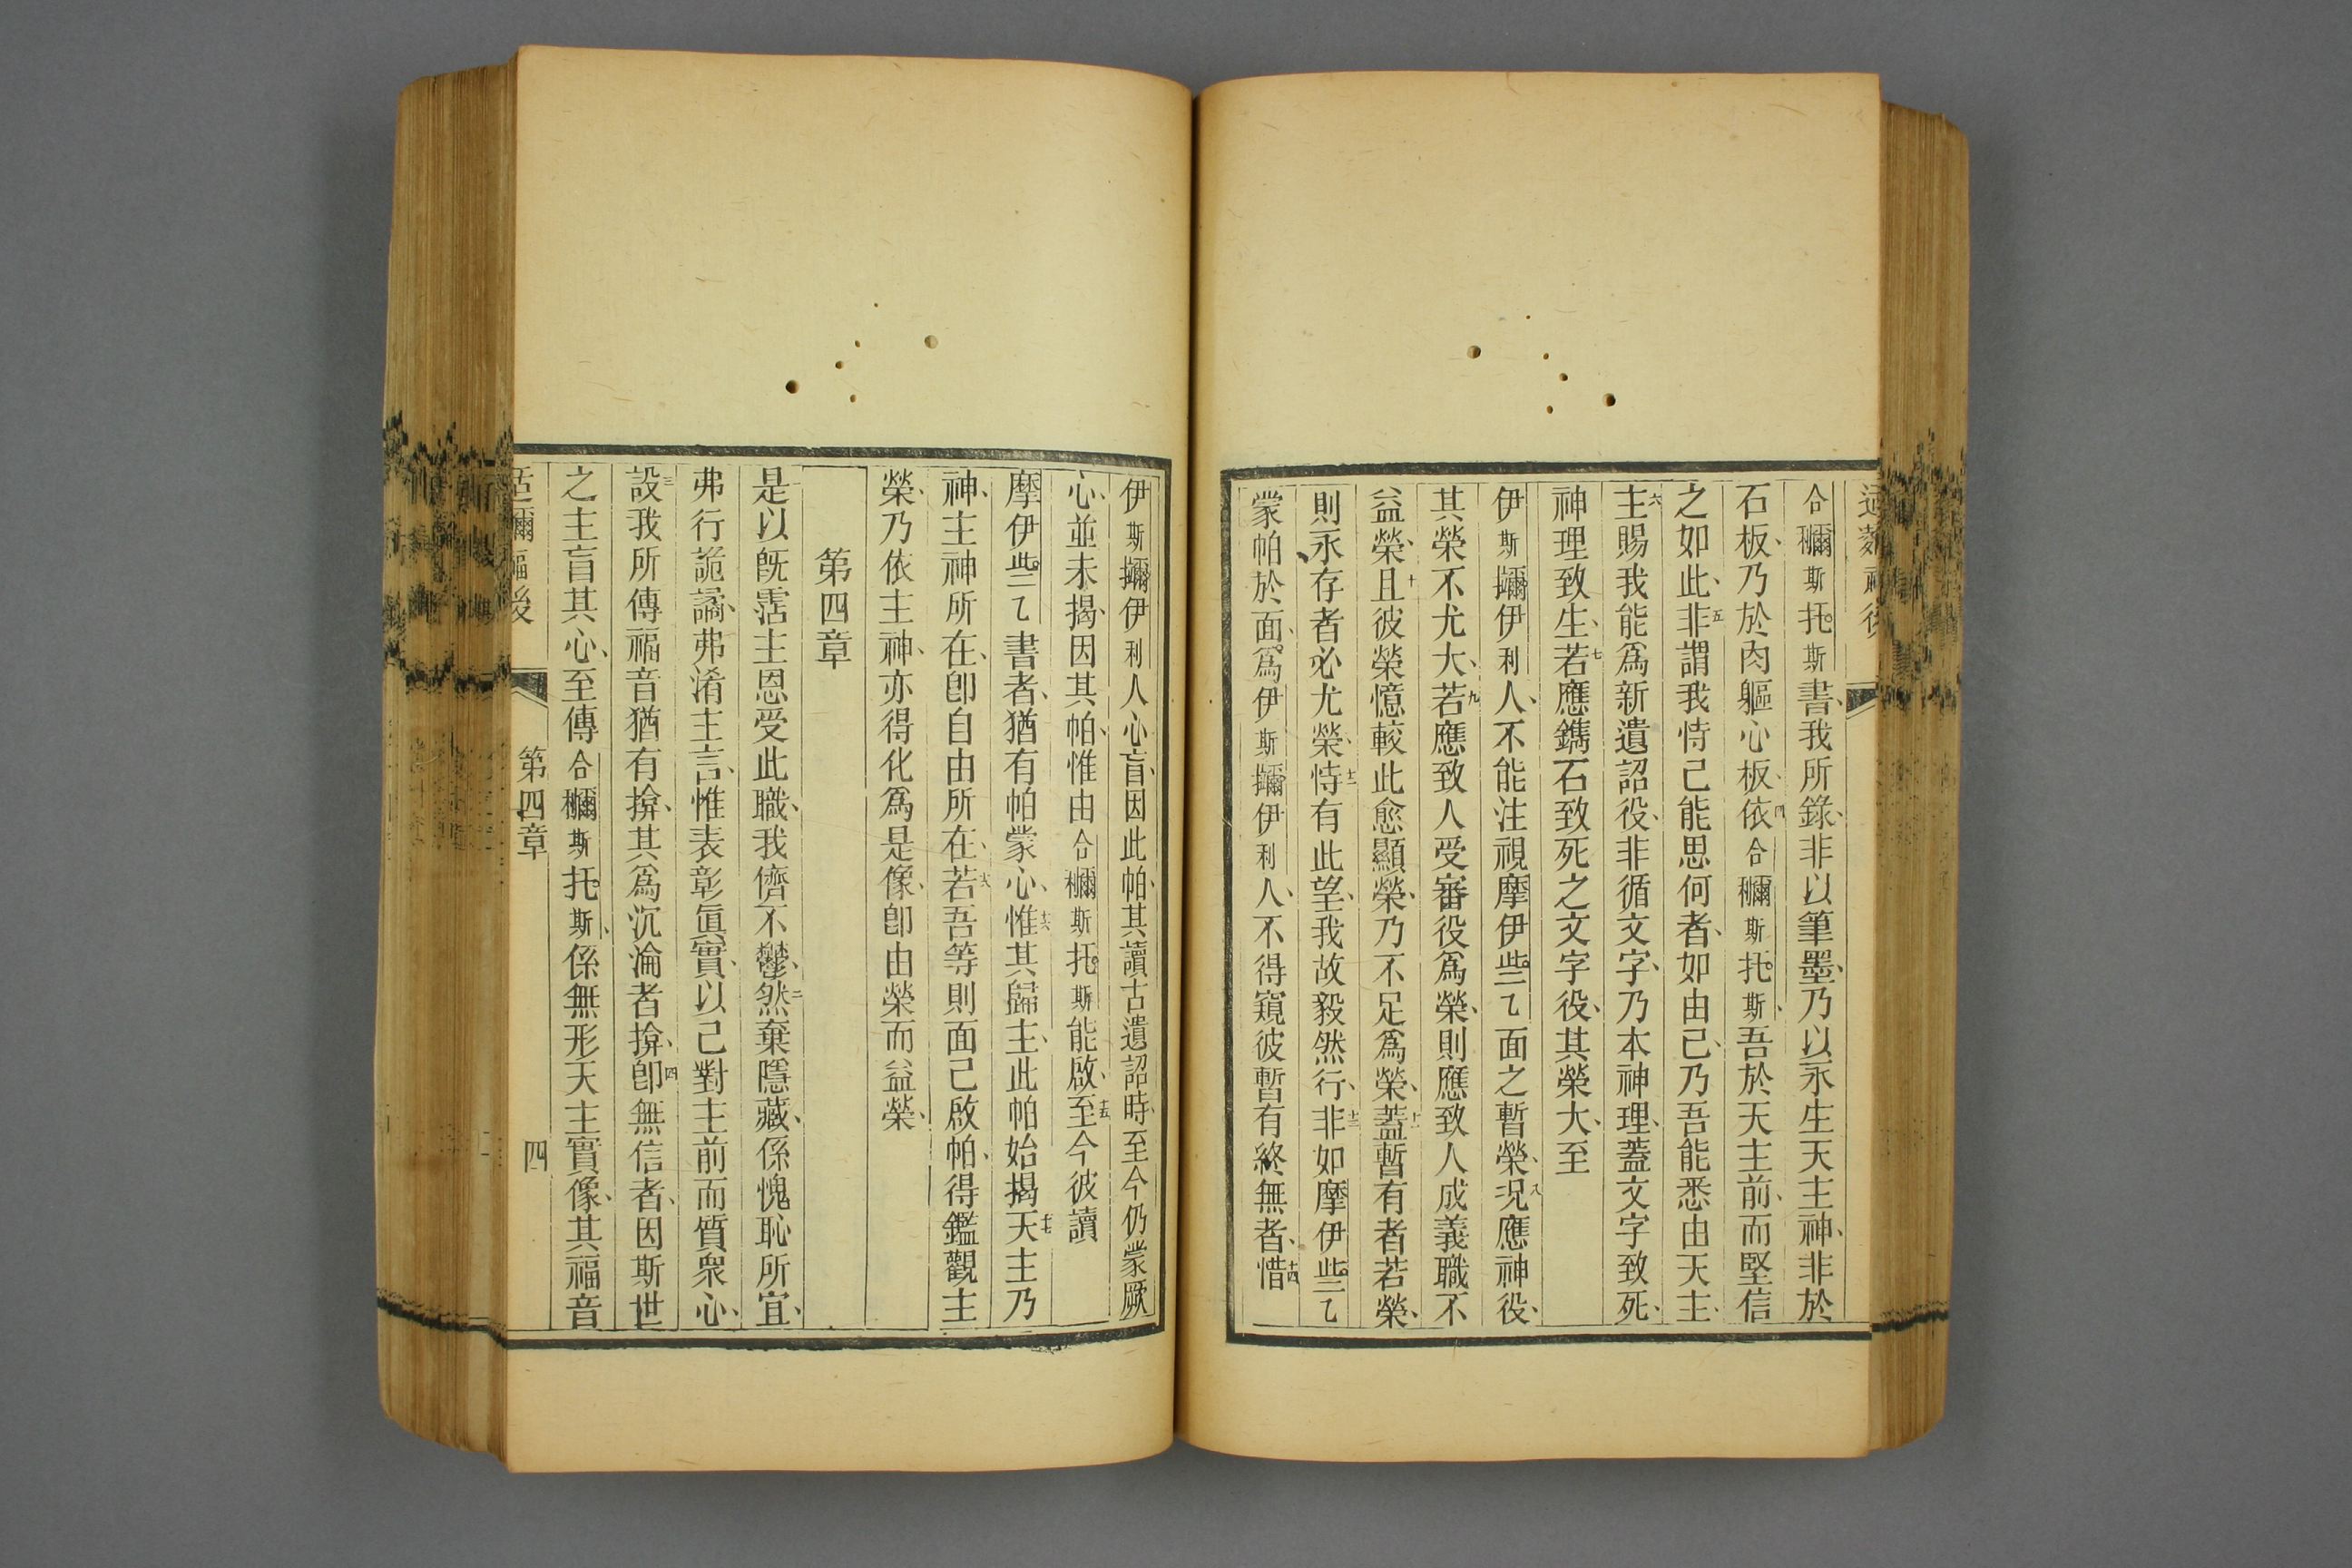 合𮂹斯托斯書我所錄、非以筆墨、乃以永生天主神、非於
石板、乃於肉軀心板、四依合𮂹斯托斯、吾於天主前、而堅信
之如此、五非謂我恃己能思何者、如由己、乃吾能悉由天主、
六主賜我能爲新遺詔役、非循文字、乃本神理、蓋文字致死、
神理致生、七若應鐫石致死之文字役、其榮大、至
伊斯擟伊利人、不能注視摩伊些乙面之暫榮、八況應神役、
其榮不尤大、九若應致人受審役爲榮、則應致人成義職不
益榮、十且彼榮憶較此愈顯榮、乃不足爲榮、十一蓋暫有者若榮、
則永存者必尤榮、十二恃有此望、我故毅然行、十三非如摩伊些乙
蒙帕於面、爲伊斯擟伊利人、不得窺彼暫有終無者、十四惜
伊斯擟伊利人心盲、因此帕、其讀古遺詔時、至今仍蒙厥
心、並未揭、因其帕、惟由合𮂹斯托斯能啟、十五至今彼讀
摩伊些乙書者、猶有帕蒙心、十六惟其歸主、此帕始揭、十七天主乃
神、主神所在、卽自由所在、十八若吾等則面己啟帕、得鑑觀主
榮、乃依主神、亦得化爲是像、卽由榮而益榮、
第四章
是以旣霑主恩受此職、我儕不鬱、二然棄隱藏、係愧恥所宜、
弗行詭譎、弗淆主言、惟表彰眞實、以己對主前而質衆心、
三設我所傳福音猶有揜、其爲沉淪者揜、四卽無信者、因斯世
之主盲其心、至傳合𮂹斯托斯、係無形天主實像、其福音
第四章
四